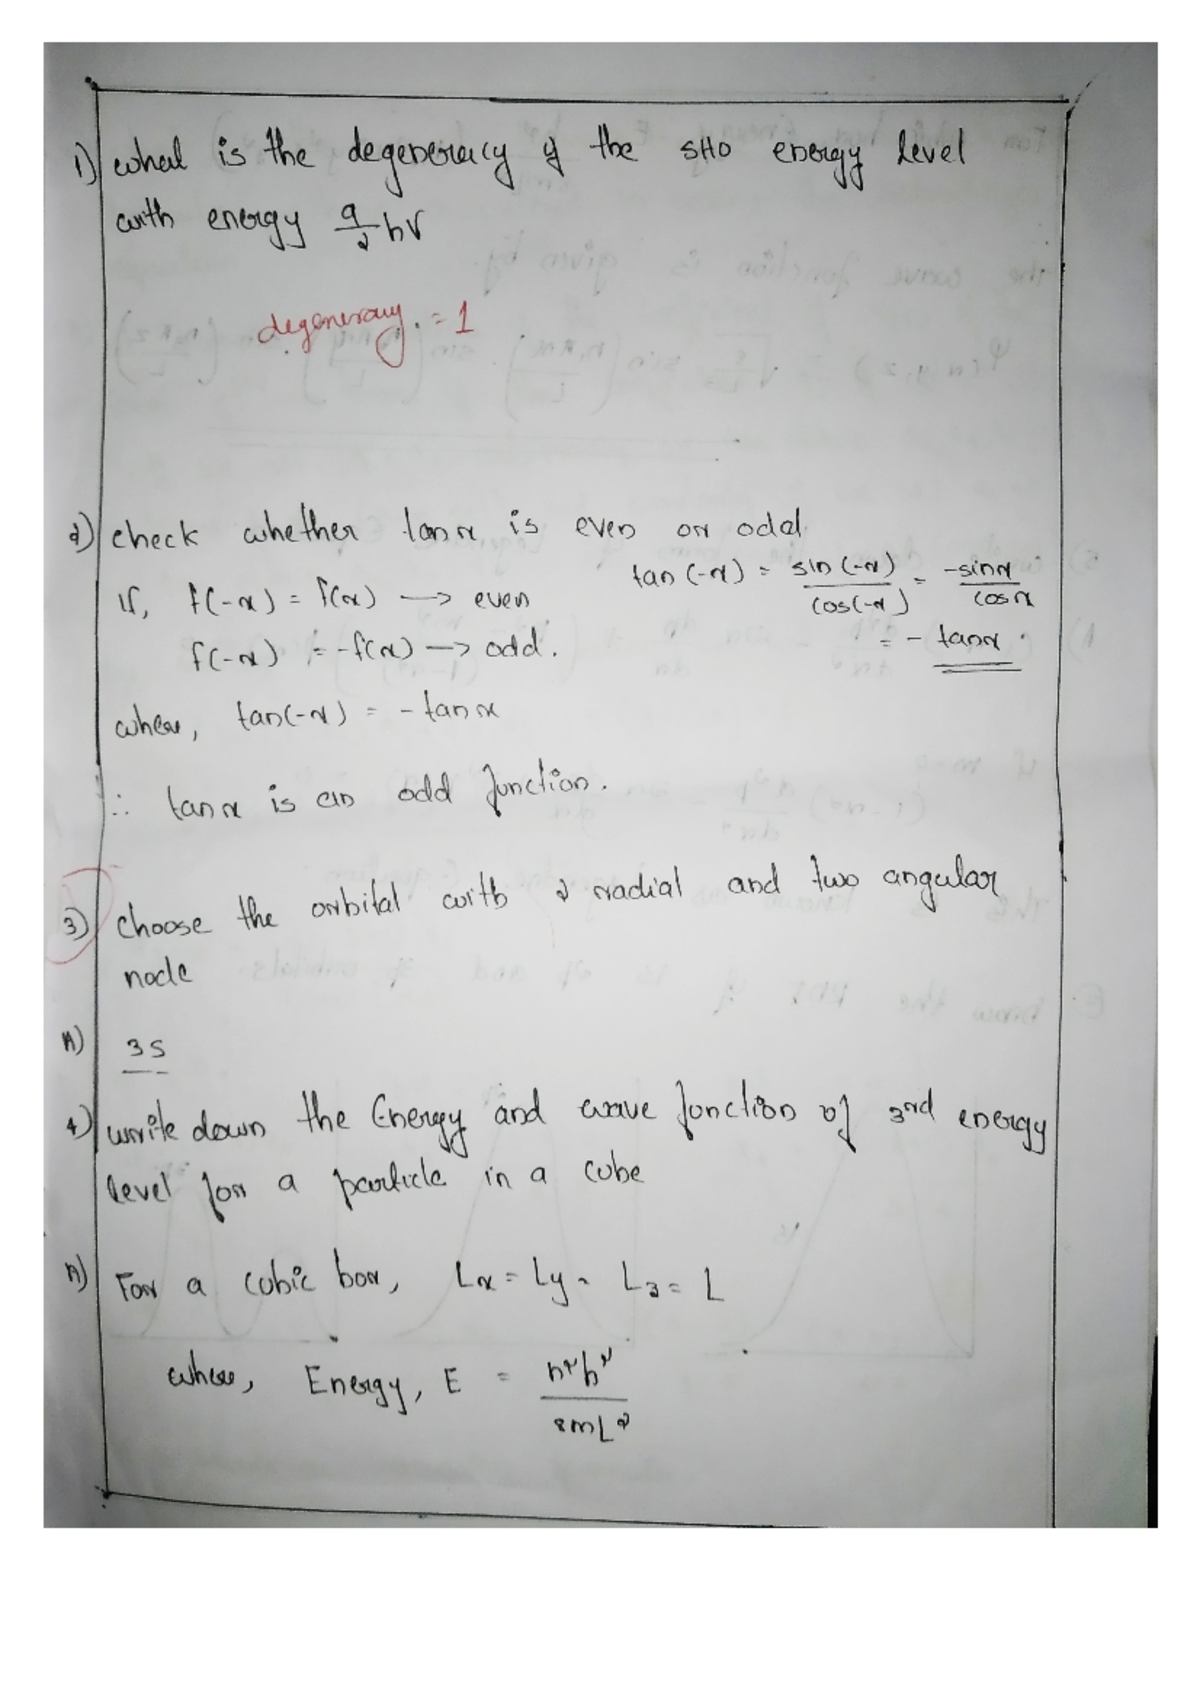 1) what is the degeneracy of the SHO energy level
with energy 9/2 hν
degeneracy. = 1
2) check whether tan x is even or odd
tan (-x) = sin (-x) / cos(-x) = -sinx / cosx
If, f(-x) = f(x) → even
= - tanx
f(-x) = -f(x) → odd.
where, tan(-x) = - tan x
∴ tan x is an odd function.
3) choose the orbital with 2 radial and two angular
node
A) 3s
4) write down the Energy and wave function of 3rd energy
level for a particle in a cube
A) For a cubic box, Lx = Ly = Lz = L
where, Energy, E = n²h² / 8mL²